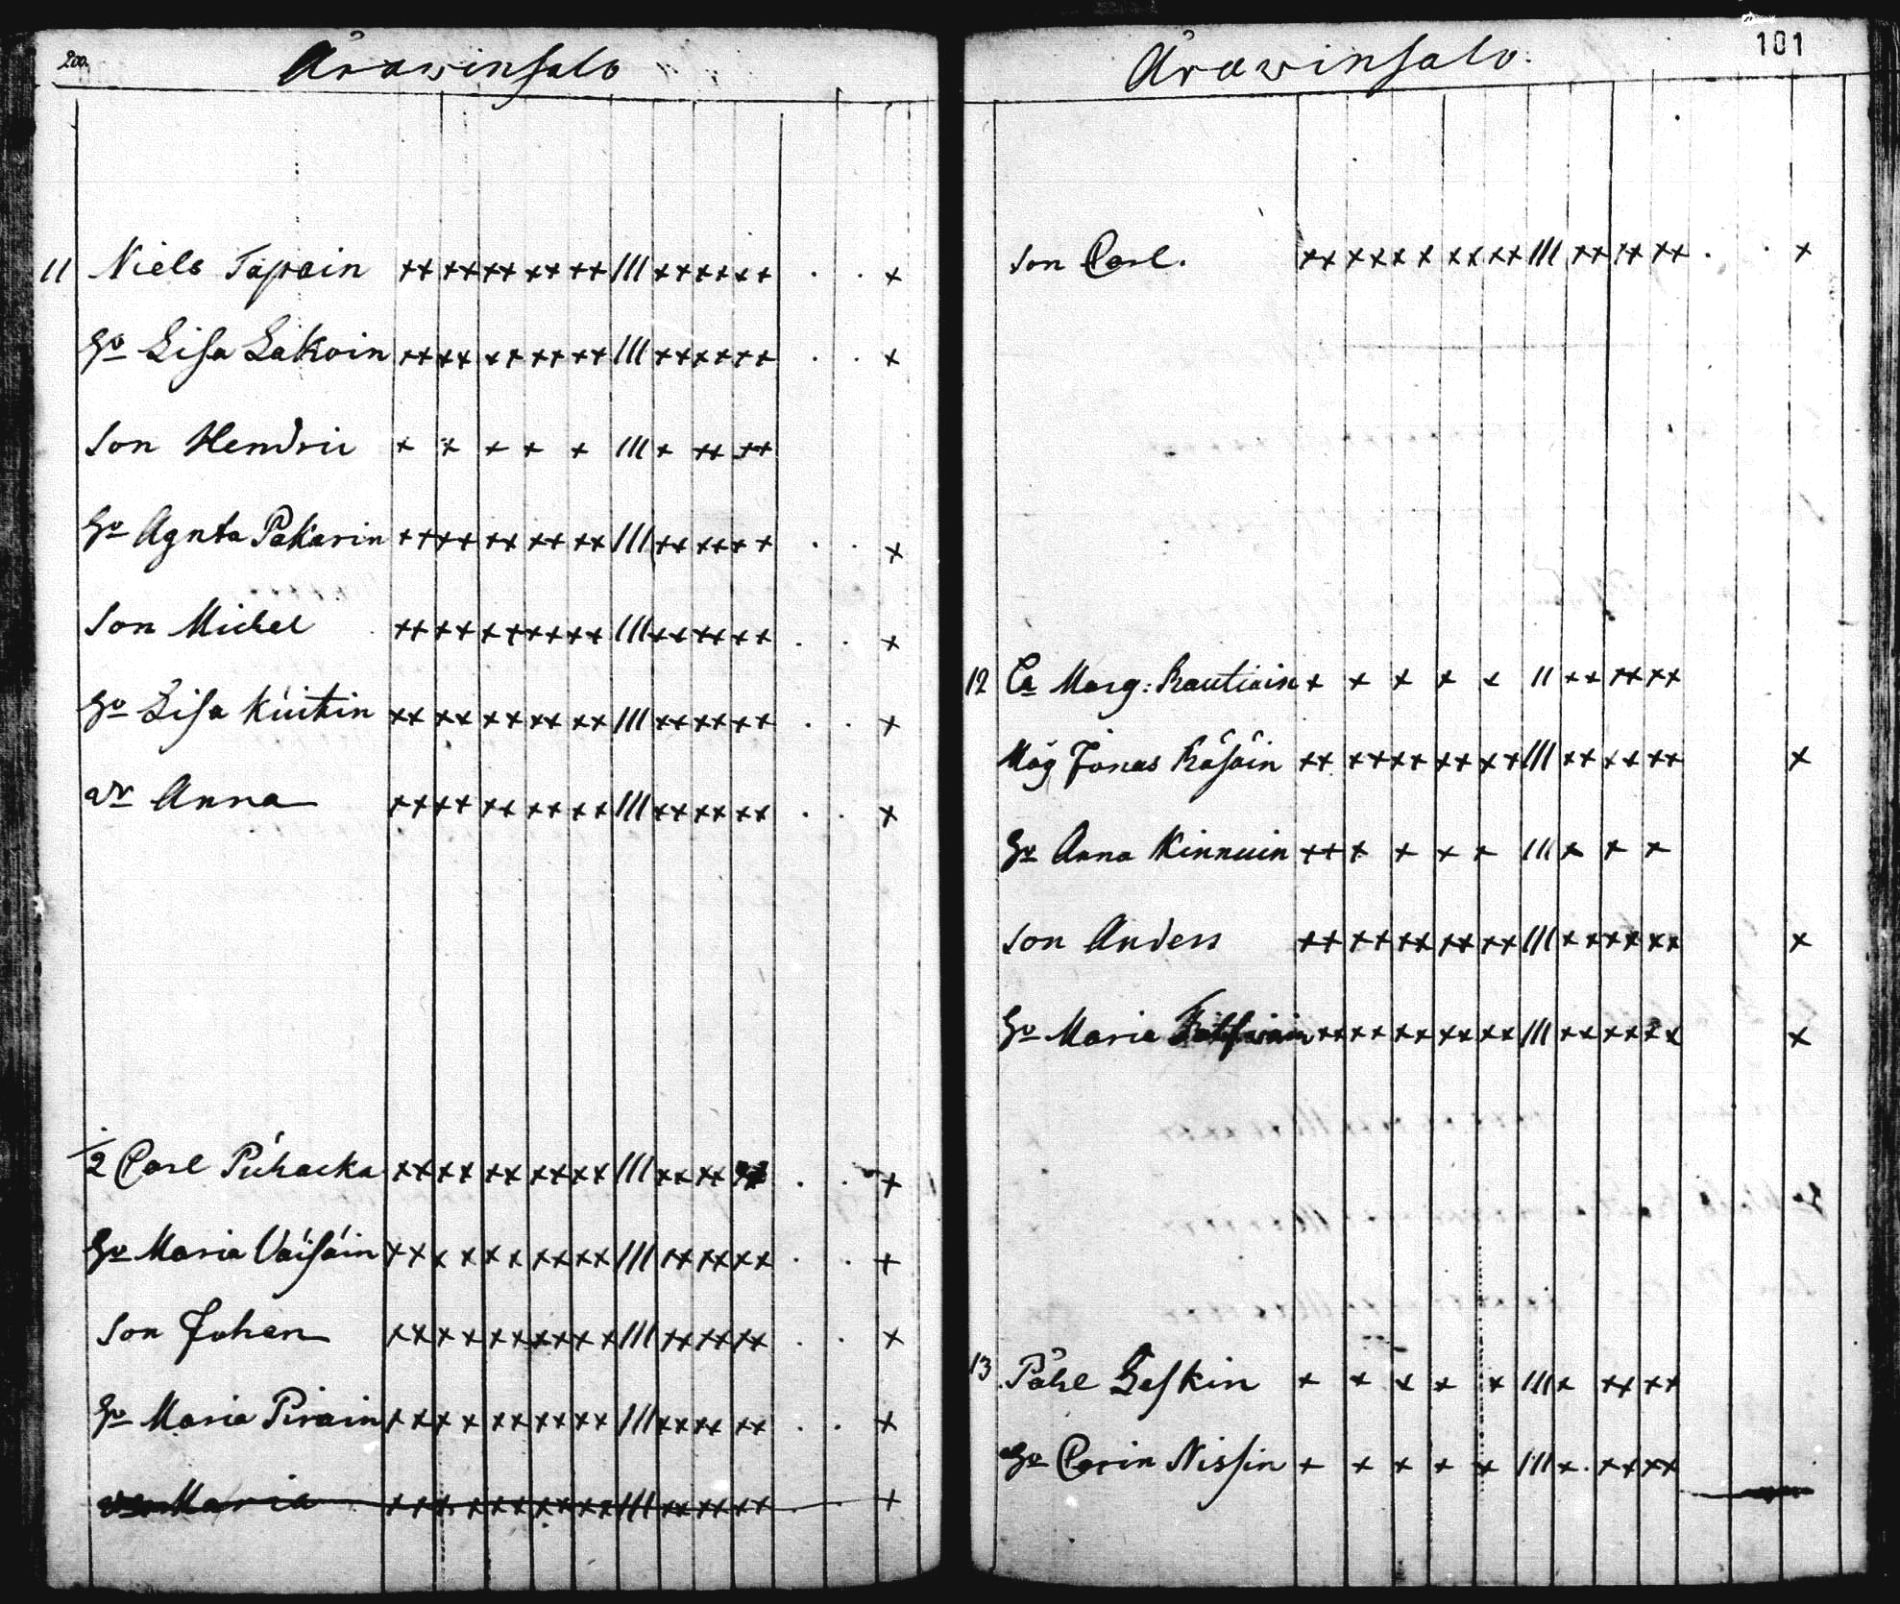 200.
Årawinsalo
11 Niels Tapain ++ ++ ++ ++ ++ /// ++ ++ ++ . . +
Hu Lisa Lakoin ++ ++ ++ ++ ++ /// ++ ++ ++ . . +
Son Hendric + + + + + /// + ++ ++
Hu Agnta Pakarin ++ ++ ++ ++ ++ /// ++ ++ ++ . . +
Son Michel ++ ++ ++ ++ ++ /// ++ ++ ++ . . +
Hu Lisa Kuitin ++ ++ ++ ++ ++ /// ++ ++ ++ . . +
Dr Anna ++ ++ ++ ++ ++ /// ++ ++ ++ . . +
1/2 Carl Puhacka ++ ++ ++ ++ ++ /// ++ ++ . . +
Hu Maria Väisäin ++ + ++ ++ ++ /// ++ ++ ++ . . +
Son Johan ++ ++ ++ ++ ++ /// ++ ++ ++ . . +
Hu Maria Pirain ++ ++ ++ ++ ++ /// ++ ++ ++ . . +
Maria ++ ++ ++ ++ ++ /// ++ ++ ++ . +
101
Årawinsalo.
Son Carl. ++ ++ ++ ++ ++ /// ++ ++ ++ . . +
12 Marg: Rautiain + + + + + // ++ ++ ++
Måg Jonas Räsäin ++ ++ ++ ++ ++ /// ++ ++ ++ +
Hu Anna Kinnuin ++ + + + + /// + + +
Son Anders ++ ++ ++ ++ ++ /// ++ ++ ++ +
Hu Maria ++ ++ ++ ++ ++ /// ++ ++ ++ +
13 Påhl Leskin + + + + + /// + ++ ++
Hu Carin Nissin + + + + + /// + . ++ ++